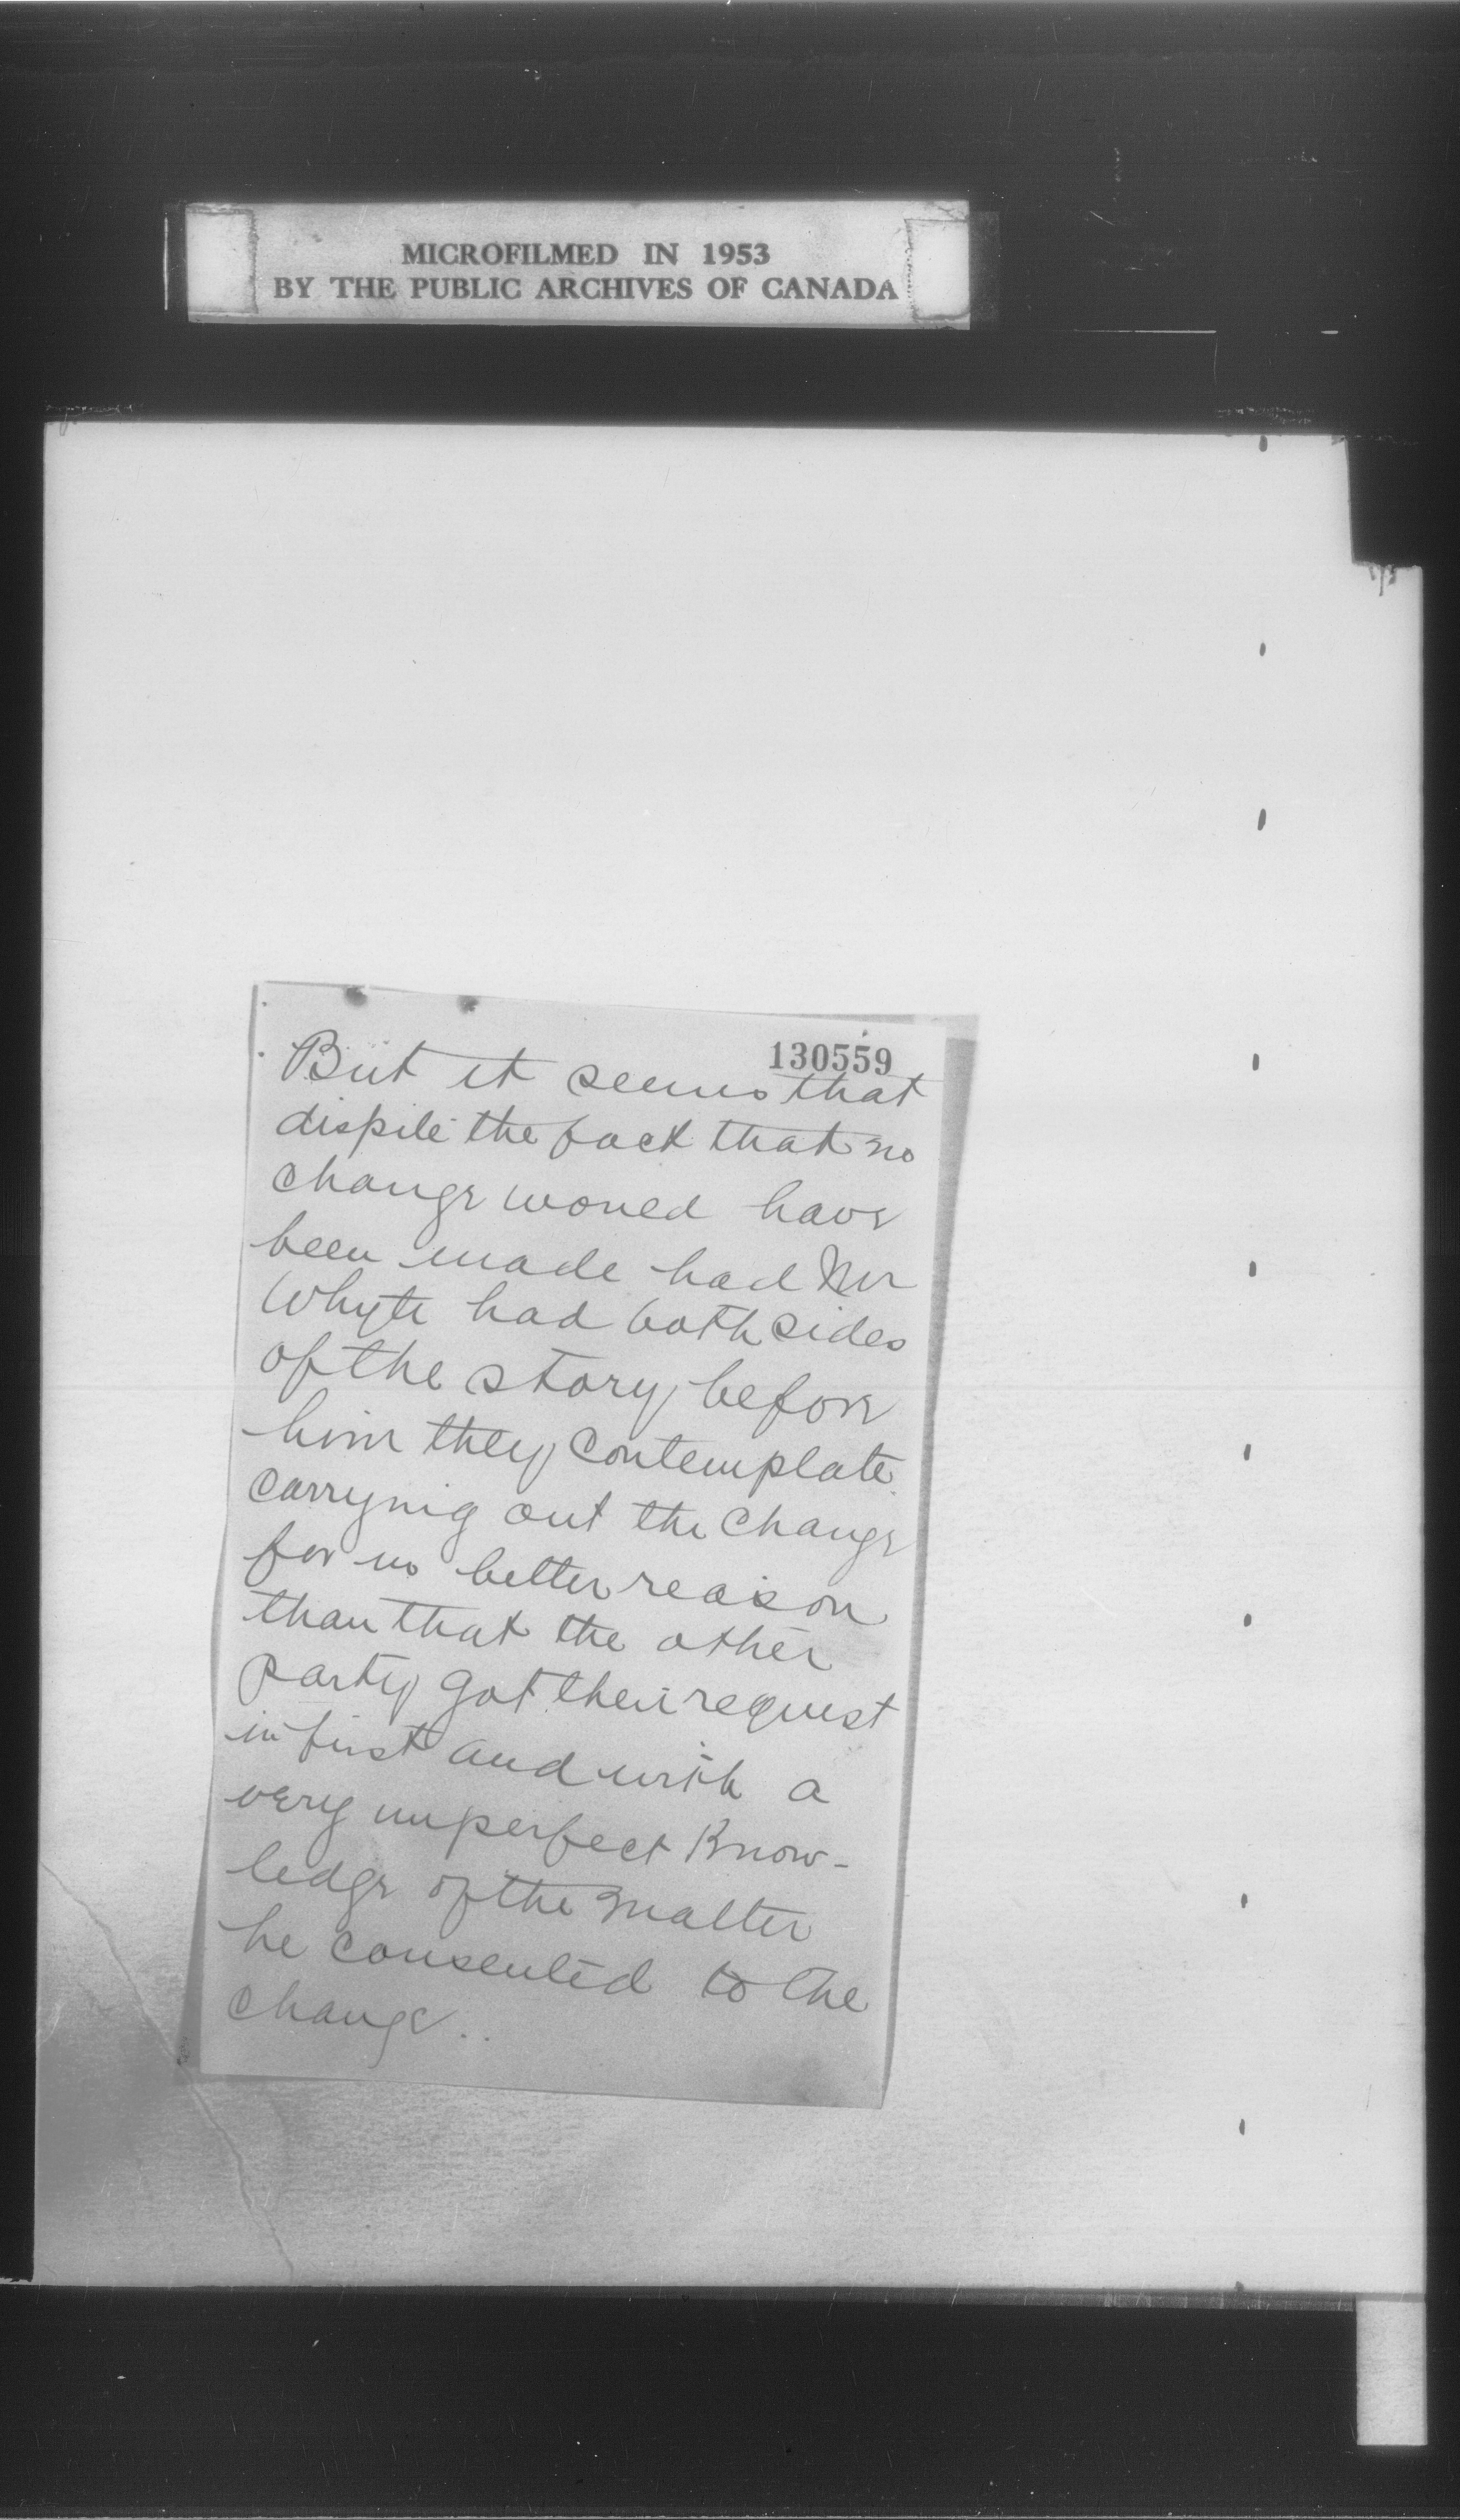 MICROFILMED IN 1953
BY THE PUBLIC ARCHIVES OF CANADA
130559
But it seems that
dispite the fact that no
change would have
been made had Mr
Whyte had both sides
of the story before
him they contemplate
carrying out the change
for no better reason
than that the other
party got their request
in first and with a
very imperfect Know-
ledge of the matter
he consented to the
change..